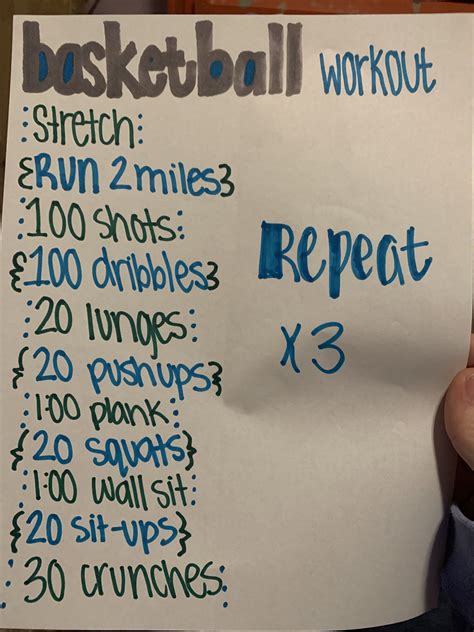 basketball workout
:Stretch:
{Run 2 miles}
:100 shots:
{100 dribbles}
:20 lunges:
{20 pushups}
:1:00 plank:
{20 squats}
:1:00 wall sit:
{20 sit-ups}
:30 crunches:
Repeat
x3